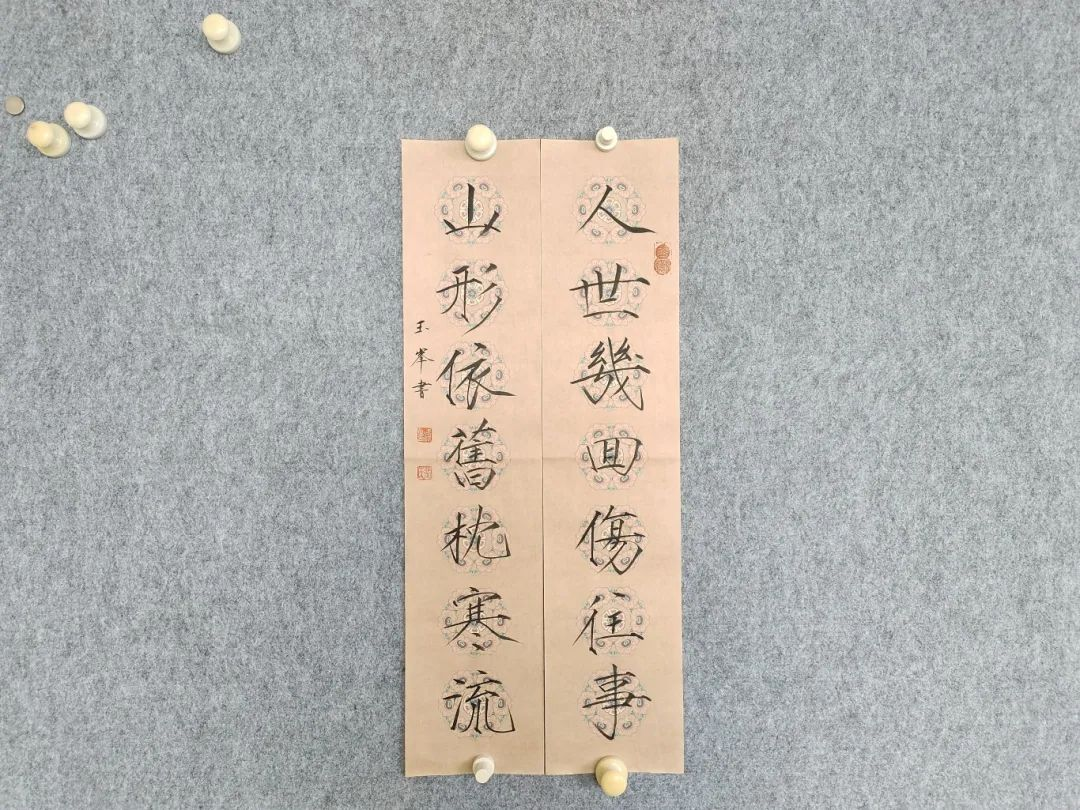 人世幾回傷往事
山形依舊枕寒流
玉峯書